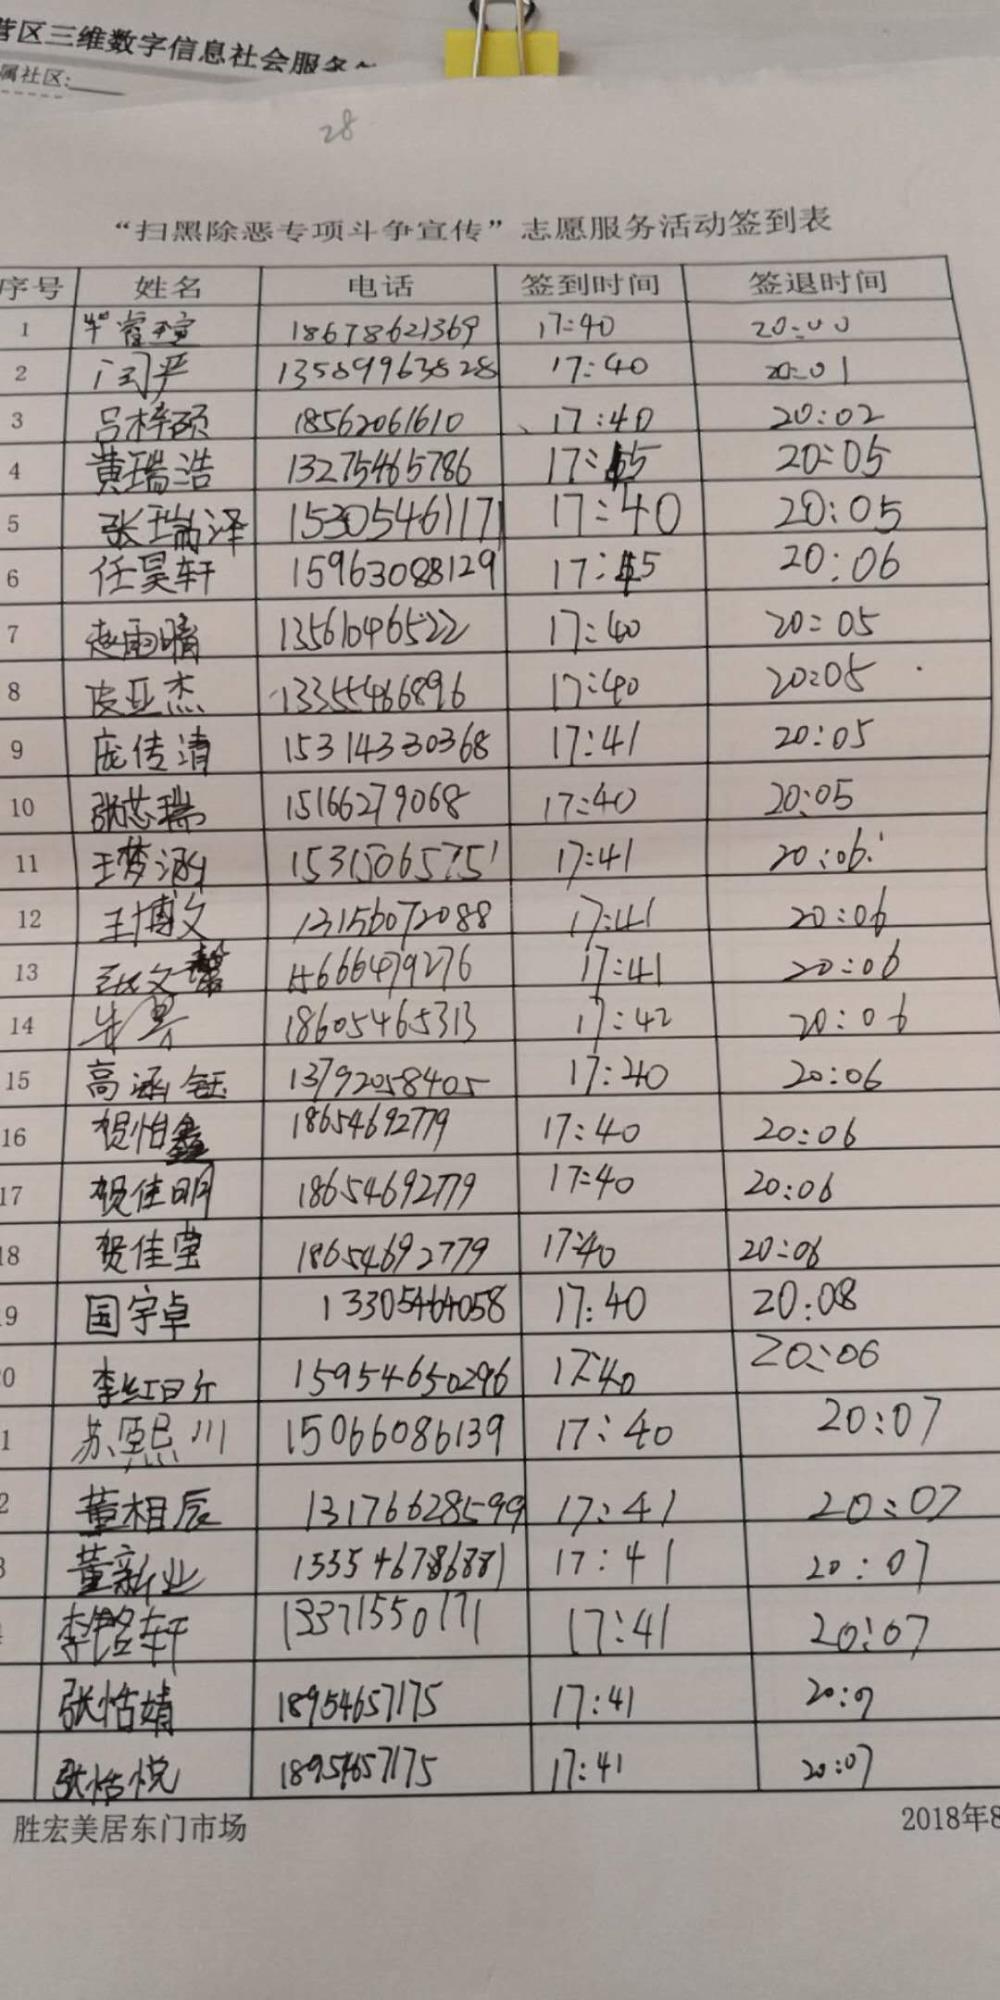 营区三维数字信息社会服务
属社区:
28
“扫黑除恶专项斗争宣传”志愿服务活动签到表
序号 姓名 电话 签到时间 签退时间
1 18678621369 17:40 20:00
2 闫严 13589963828 17:40 20:01
3 吕梓硕 18562061610 17:40 20:02
4 黄瑞浩 13275465786 17:45 20:05
5 张瑞泽 15305461171 17:40 20:05
6 任昊轩 15963088129 17:45 20:06
7 赵雨晴 13561046522 17:40 20:05
8 皮亚杰 13355466896 17:40 20:05
9 庞传清 15314330368 17:41 20:05
10 张芯瑞 15166279068 17:40 20:05
11 王梦涵 15315065751 17:41 20:06
12 王博文 13156072088 17:41 20:06
13 张文馨 15666479276 17:41 20:06
14 18605465313 17:42 20:06
15 高涵钰 13792058405 17:40 20:06
16 贺怡鑫 18654692779 17:40 20:06
17 贺佳明 18654692779 17:40 20:06
18 贺佳莹 18654692779 17:40 20:06
9 国宇卓 13305464058 17:40 20:08
0 李红日 15954650296 17:40 20:06
1 苏熙川 15066086139 17:40 20:07
2 董相辰 13176628599 17:41 20:07
3 董新业 17:41 20:07
李铭轩 13371550171 17:41 20:07
张恬婧 18954657175 17:41 20:7
张恬悦 18954657175 17:41 20:07
胜宏美居东门市场 2018年8